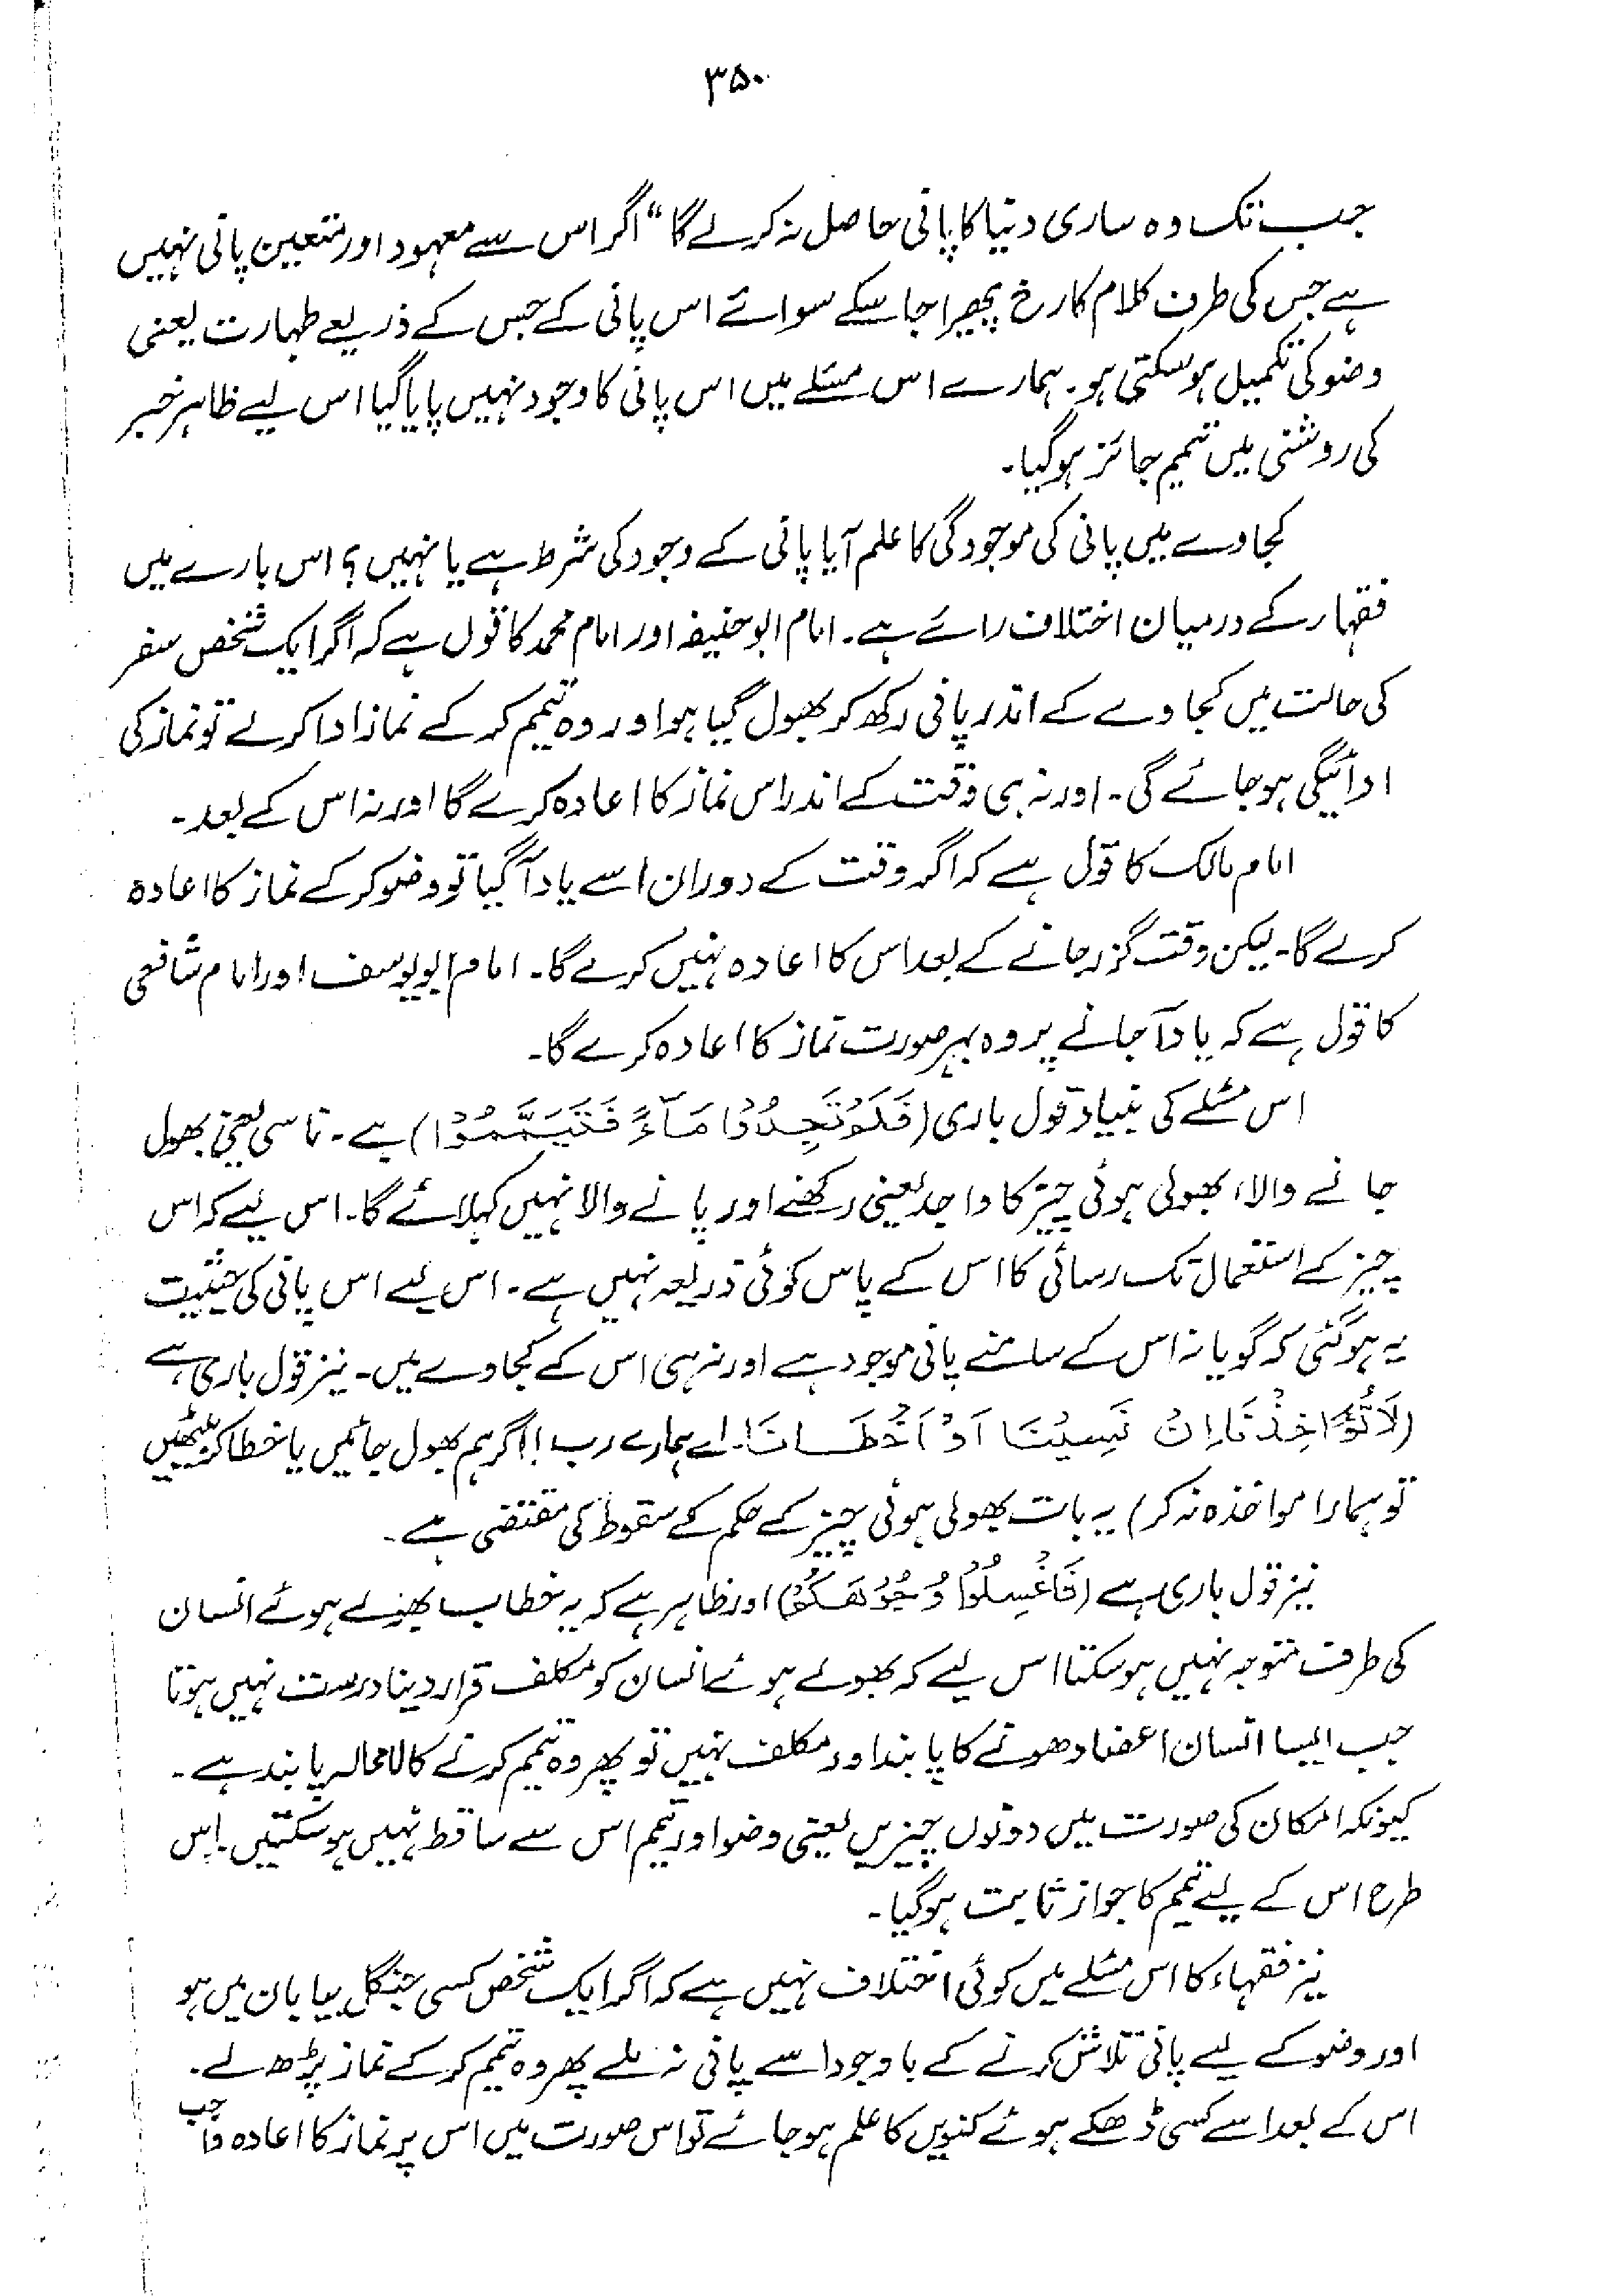 ۳۵۰
جب تک وہ ساری دنیا کا پانی حاصل نہ کرلے گا“ اگر اس سے معہود اور متعین پانی نہیں
ہے جس کی طرف کلام کا رخ پھیرا جا سکے سوائے اس پانی کے جس کے ذریعے طہارت یعنی
وضو کی تکمیل ہو سکتی ہو۔ ہمارے اس مسئلے میں اس پانی کا وجود نہیں پایا گیا اس لیے ظاہر خبر
کی روشنی میں تیمم جائز ہو گیا۔
کجاوے میں پانی کی موجودگی کا علم آیا پانی کے وجود کی شرط ہے یا نہیں؟ اس بارے میں
فقہار کے درمیان اختلاف رائے ہے۔ امام ابو حنیفہ اور امام محمد کا قول ہے کہ اگر ایک شخص سفر
کی حالت میں کجاوے کے اندر پانی رکھ کر بھول گیا ہو اور وہ تیمم کر کے نماز ادا کرلے تو نماز کی
ادائیگی ہو جائے گی۔ اور نہ ہی وقت کے اندر اس نماز کا اعادہ کرے گا اور نہ اس کے بعد۔
امام مالک کا قول ہے کہ اگر وقت کے دوران اسے یاد آ گیا تو وضو کر کے نماز کا اعادہ
کرے گا۔ لیکن وقت گزر جانے کے بعد اس کا اعادہ نہیں کرے گا۔ امام ابو یوسف اور امام شافعی
کا قول ہے کہ یاد آ جانے پر وہ بہر صورت نماز کا اعادہ کرے گا۔
اس مسئلے کی بنیاد قول باری (فَلَمْ تَجِدُوْا مَآءً فَتَيَمَّمُوْا) ہے۔ ناسی یعنی بھول
جانے والا، بھولی ہوئی چیز کا واجد یعنی رکھنے اور پانے والا نہیں کہلائے گا۔ اس لیے کہ اس
چیز کے استعمال تک رسائی کا اس کے پاس کوئی ذریعہ نہیں ہے۔ اس لیے اس پانی کی حیثیت
یہ ہو گئی کہ گویا نہ اس کے سامنے پانی موجود ہے اور نہ ہی اس کے کجاوے میں۔ نیز قول باری ہے
(لَا تُؤَاخِذْنَا اِنْ نَسِيْنَا اَوْ اَخْطَأْنَا۔ اے ہمارے رب! اگر ہم بھول جائیں یا خطا کر بیٹھیں
تو ہمارا مواخذہ نہ کر) یہ بات بھولی ہوئی چیز کے حکم کے سقوط کی مقتضی ہے۔
نیز قول باری ہے (فَاغْسِلُوْا وُجُوْهَكُمْ) اور ظاہر ہے کہ یہ خطاب بھولے ہوئے انسان
کی طرف متوجہ نہیں ہو سکتا اس لیے کہ بھولے ہوئے انسان کو مکلف قرار دینا درست نہیں ہوتا
جب ایسا انسان اعضا دھونے کا پابند اور مکلف نہیں تو پھر وہ تیمم کرنے کا لامحالہ پابند ہے۔
کیونکہ امکان کی صورت میں دونوں چیزیں یعنی وضو اور تیمم اس سے ساقط نہیں ہو سکتیں۔ اس
طرح اس کے لیے تیمم کا جواز ثابت ہو گیا۔
نیز فقہاء کا اس مسئلے میں کوئی اختلاف نہیں ہے کہ اگر ایک شخص کسی جنگل بیابان میں ہو
اور وضو کے لیے پانی تلاش کرنے کے باوجود اسے پانی نہ ملے پھر وہ تیمم کر کے نماز پڑھ لے۔
اس کے بعد اسے کسی ڈھکے ہوئے کنویں کا علم ہو جائے تو اس صورت میں اس پر نماز کا اعادہ واجب